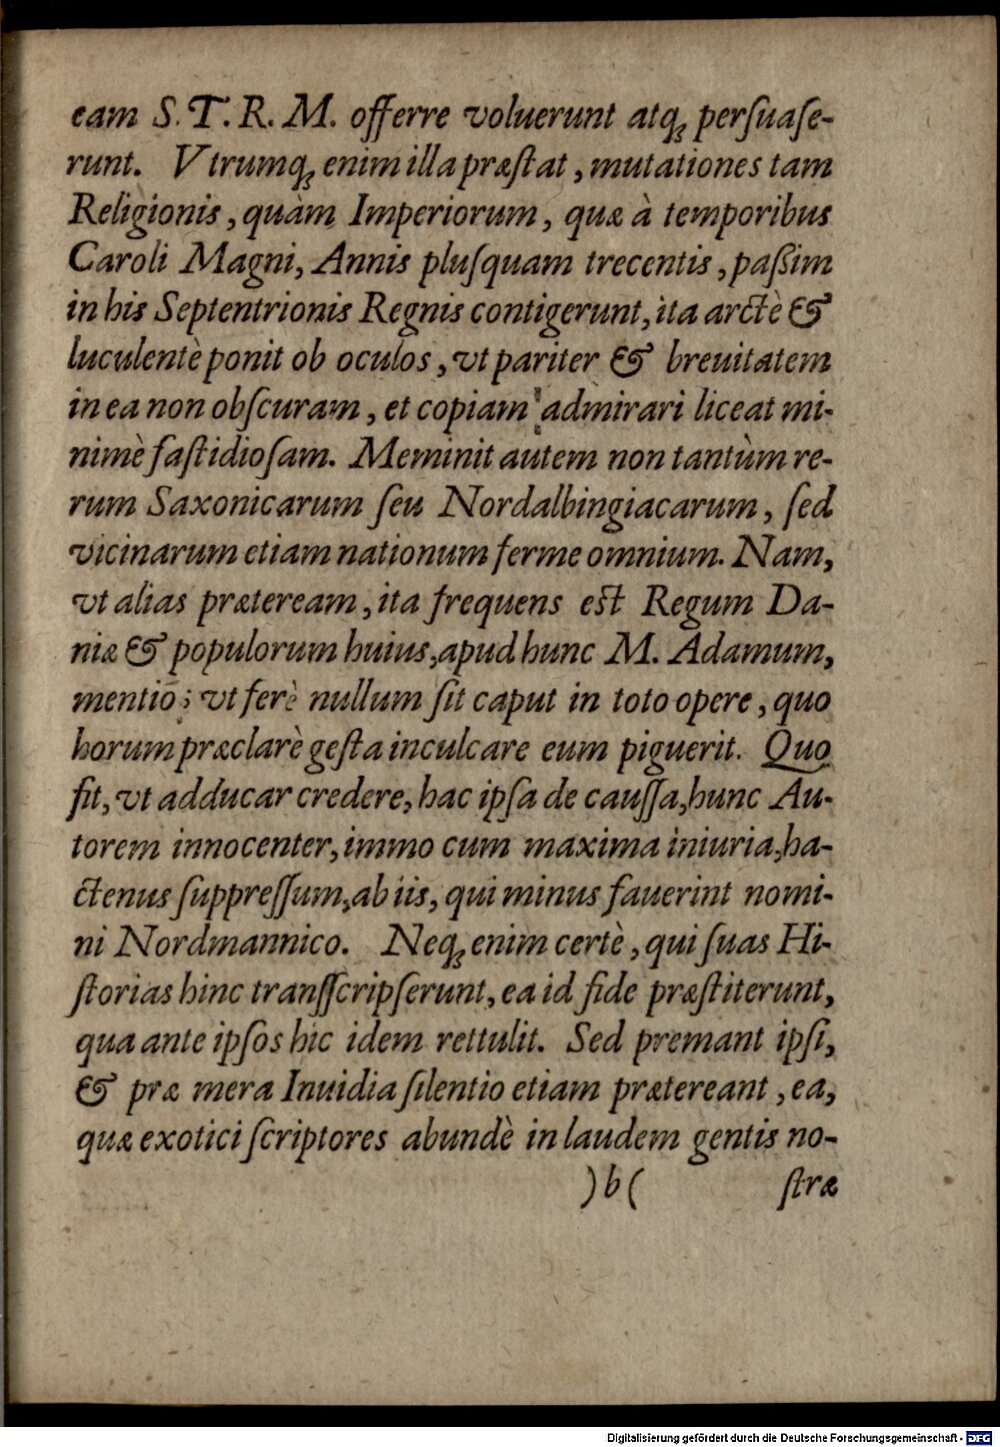 eam S. T. R. M. offerre voluerunt atqꝫ perſuaſe-
runt. Vtrumqꝫ enim illa præſtat, mutationes tam
Religionis, quàm Imperiorum, quæ à temporibus
Caroli Magni, Annis pluſquam trecentis, paßim
in his Septentrionis Regnis contigerunt, ita arctè &
luculentè ponit ob oculos, vt pariter & breuitatem
in ea non obſcuram, et copiam admirari liceat mi-
nimè faſtidioſam. Meminit autem non tantùm re-
rum Saxonicarum ſeu Nordalbingiacarum, ſed
vicinarum etiam nationum ferme omnium. Nam,
vt alias præteream, ita frequens est Regum Da-
niæ & populorum huius, apud hunc M. Adamum,
mentio; vt ferè nullum ſit caput in toto opere, quo
horum præclarè geſta inculcare eum piguerit. Quo
fit, vt adducar credere, hac ipſa de cauſſa, hunc Au-
torem innocenter, immo cum maxima iniuria, ha-
ctenus ſuppreſſum, ab iis, qui minus fauerint nomi-
ni Nordmannico. Neqꝫ enim certè, qui ſuas Hi-
ſtorias hinc tranſſcripſerunt, ea id fide præſtiterunt,
qua ante ipſos hic idem rettulit. Sed premant ipſi,
& præ mera Inuidia ſilentio etiam prætereant, ea,
quæ exotici ſcriptores abundè in laudem gentis no-
)b( ſtræ
Digitalisierung gefördert durch die Deutsche Forschungsgemeinschaft - DFG